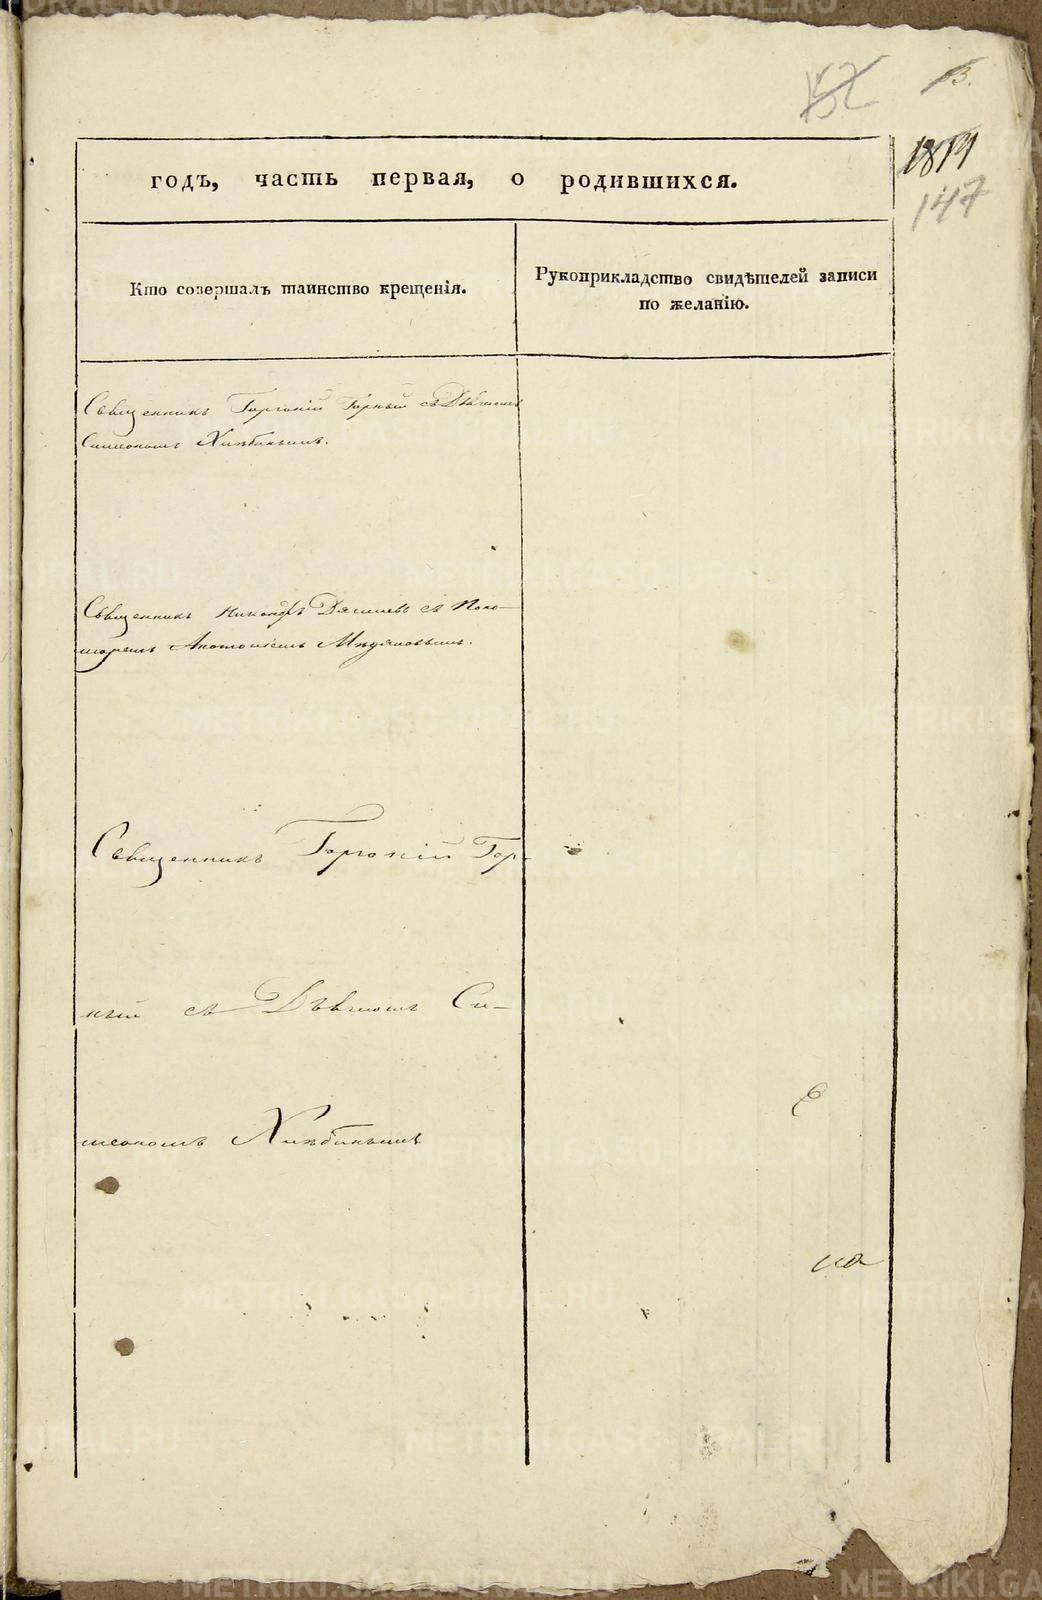 147
годъ, часть первая, о родившихся.
Кто совершалъ таинство крещенія.
Рукоприкладство свидѣтелей записи
по желанію.
Священникъ Горгоній Горный съ Дьячкомъ
Симеономъ Хлѣбинымъ.
Священникъ Никандръ съ Поно-
маремъ
Священникъ Горгоній Гор-
ный съ Дьячкомъ Си-
меономъ Хлѣбинымъ
METRIKI.GASO-URAL.RU